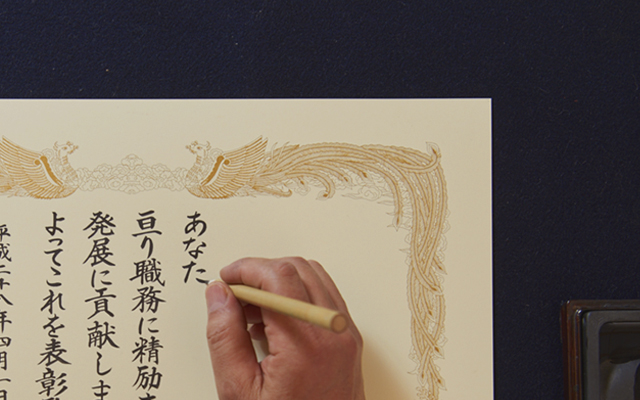 あなた
亘り職務に精励
発展に貢献しま
よってこれを表彰
平成二十八年四月一日